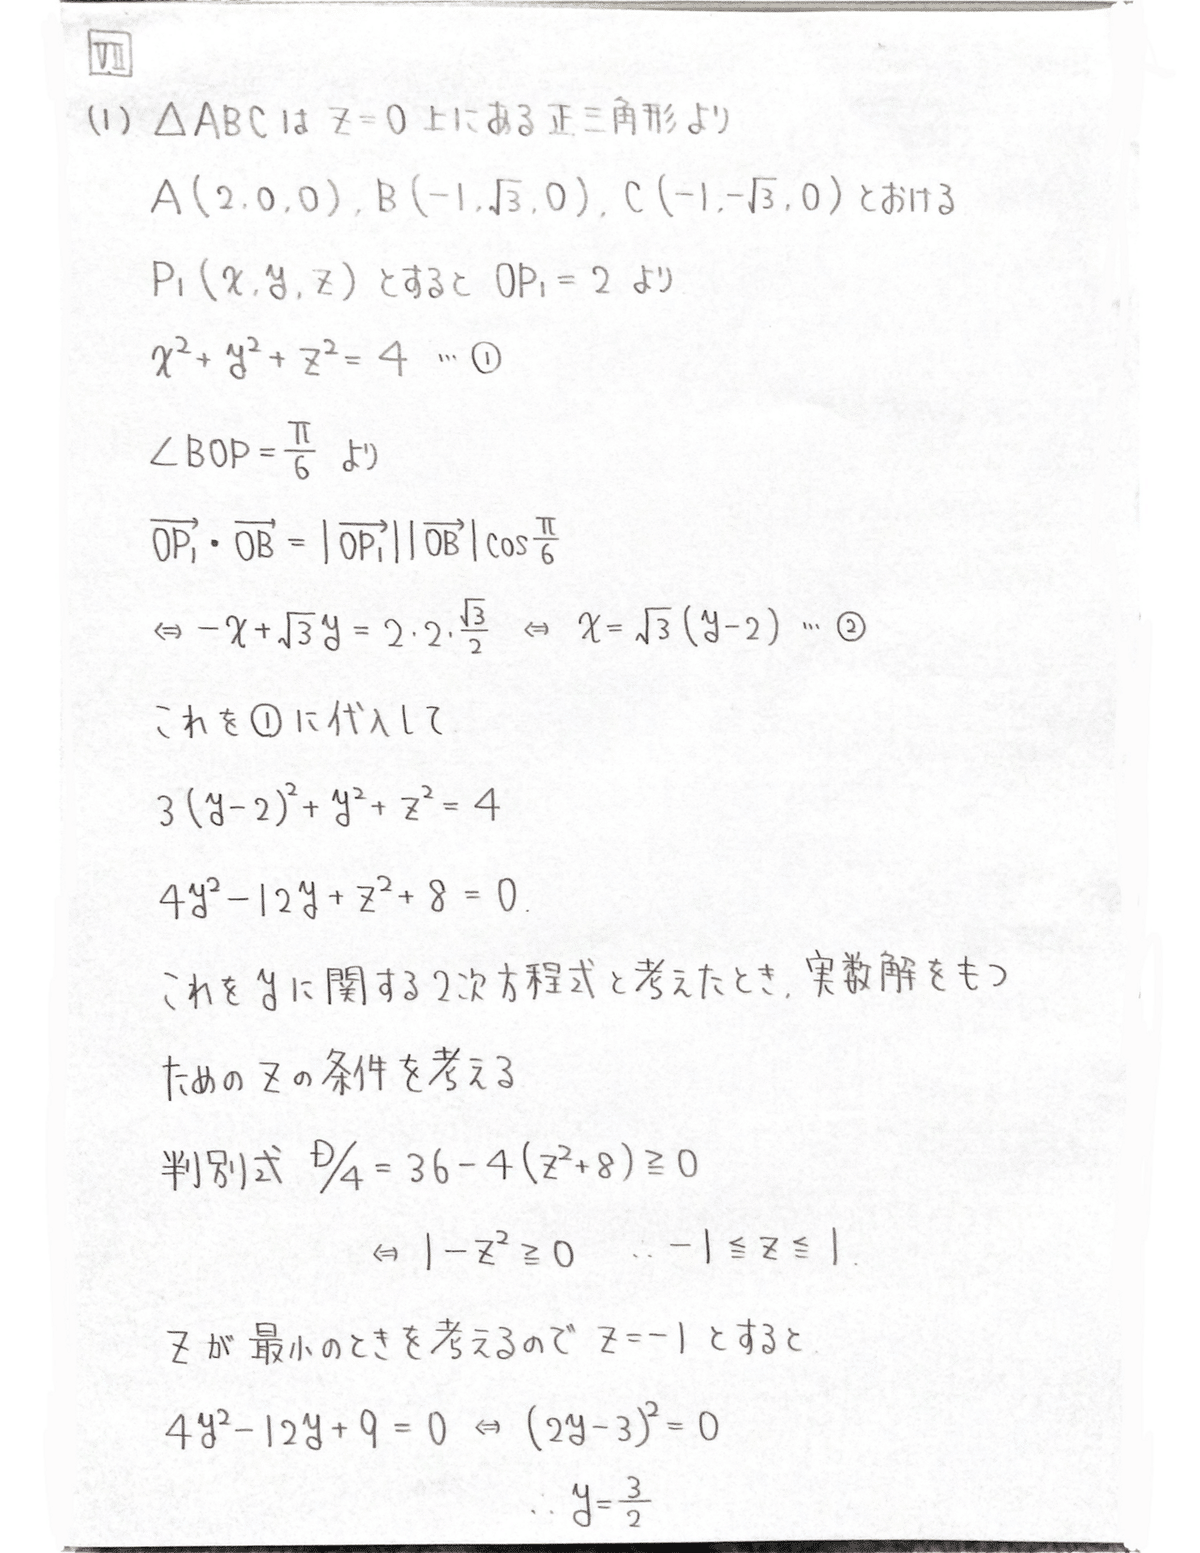 VII
(1) △ABCは z=0 上にある正三角形より
A(2,0,0), B(-1,√3,0), C(-1,-√3,0)とおける
P₁(x,y,z)とすると OP₁=2 より
x²+y²+z²=4 …①
∠BOP=π/6 より
→OP₁・→OB=|→OP₁||→OB|cosπ/6
⇔ -x+√3y=2・2・√3/2 ⇔ x=√3(y-2) …②
これを①に代入して
3(y-2)²+y²+z²=4
4y²-12y+z²+8=0.
これをyに関する2次方程式と考えたとき,実数解をもつ
ためのzの条件を考える
判別式 D/4=36-4(z²+8)≧0
⇔ 1-z²≧0 ∴ -1≦z≦1.
zが最小のときを考えるので z=-1とすると
4y²-12y+9=0 ⇔ (2y-3)²=0
∴ y=3/2